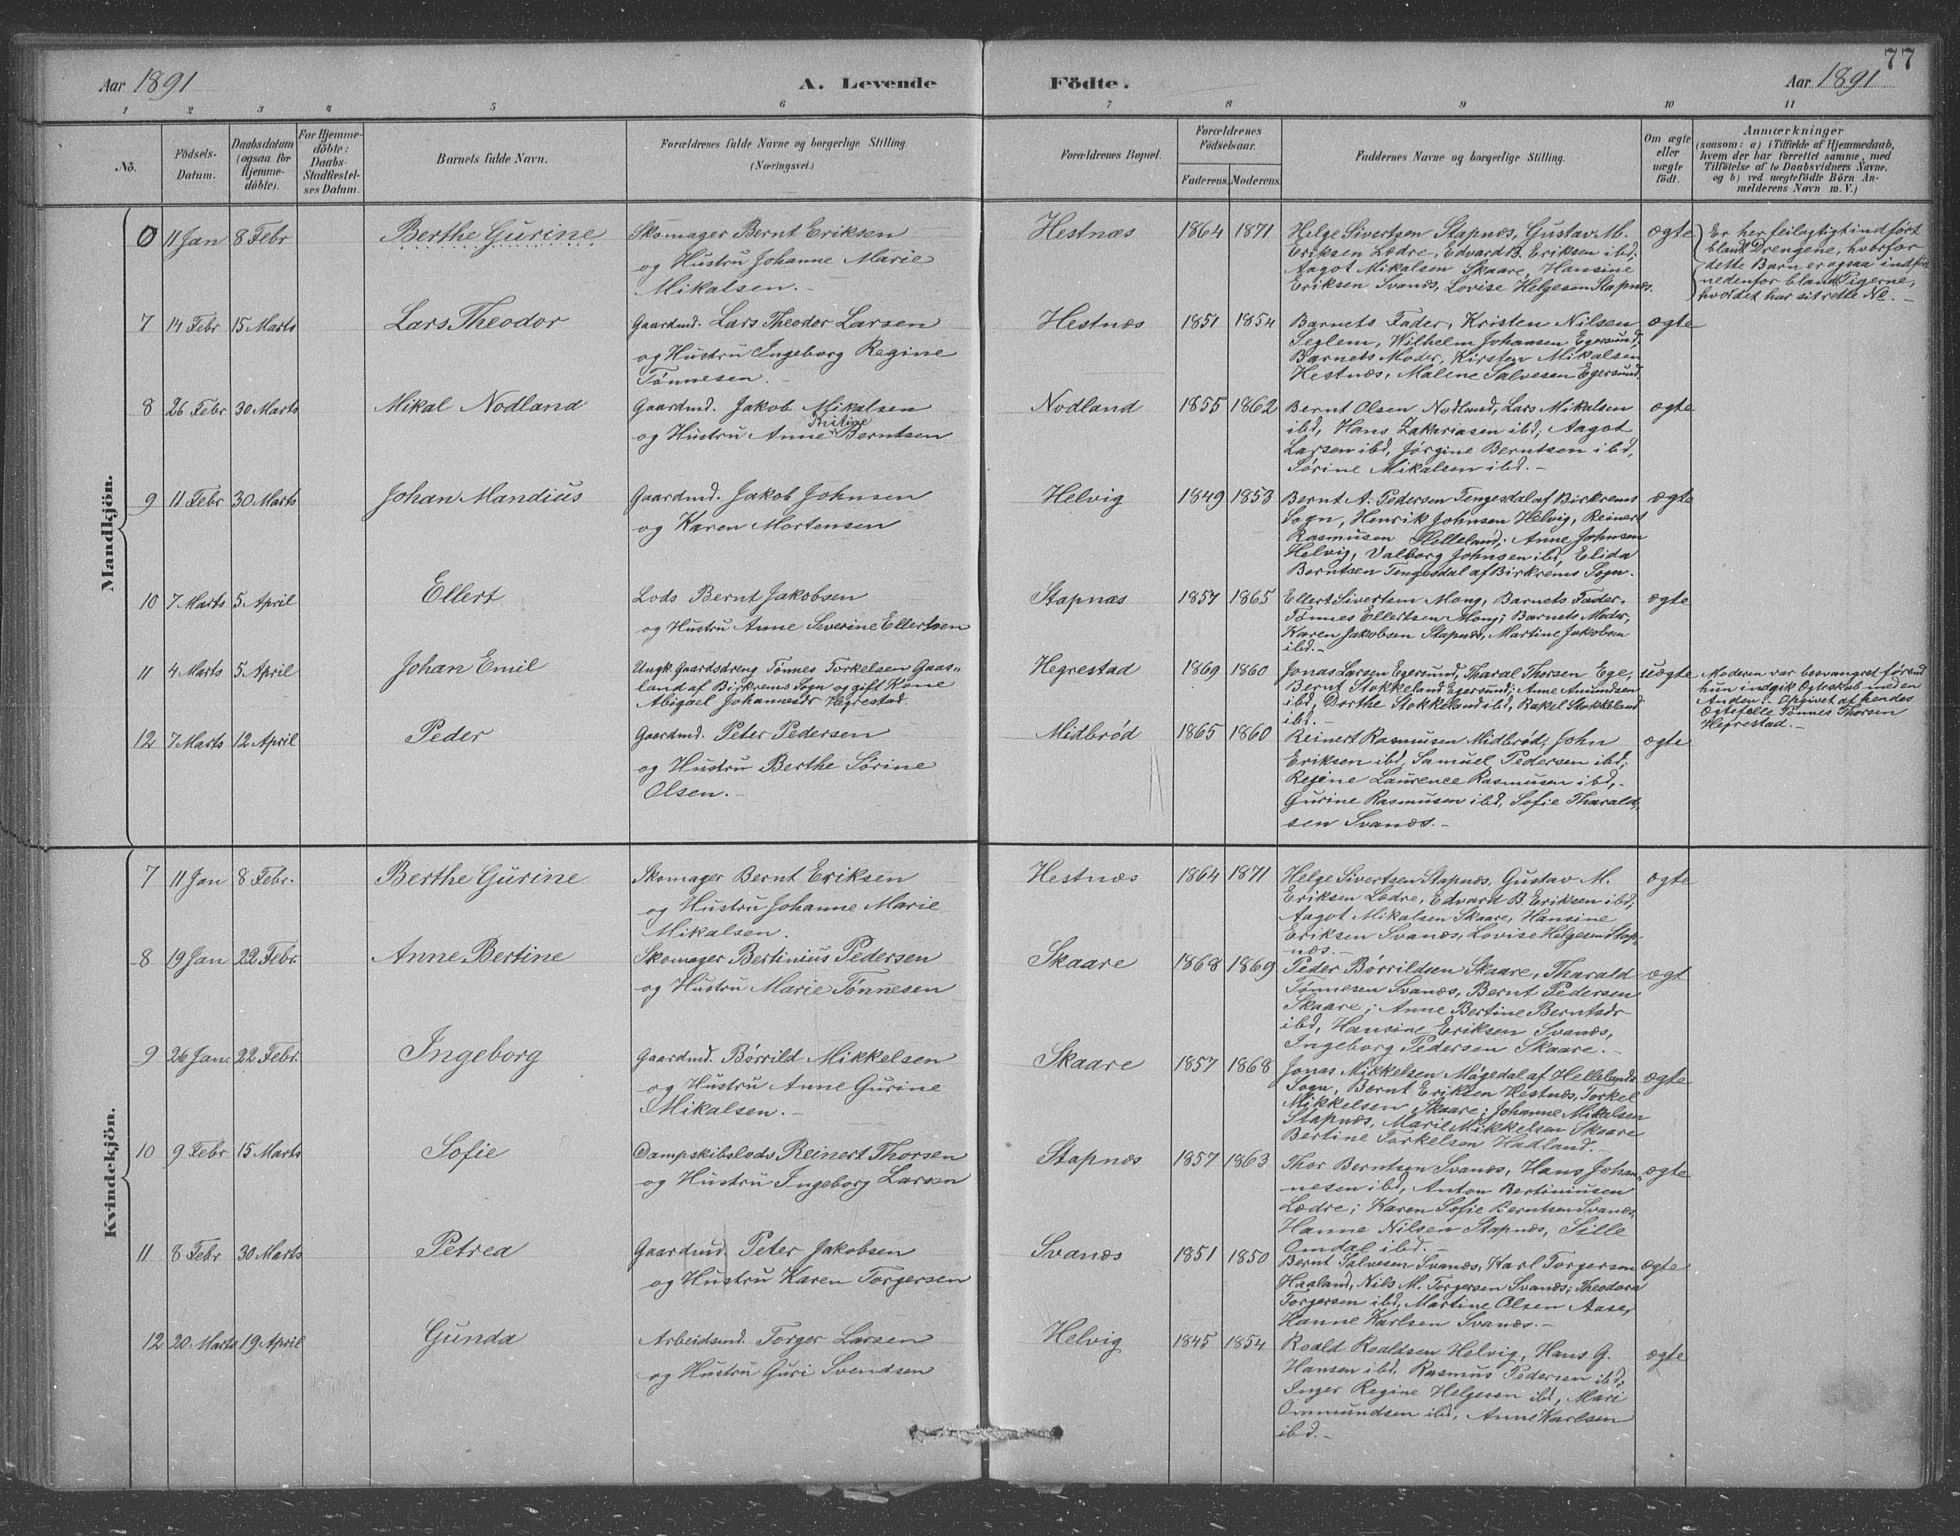 77
Aar 1891 A. Levende Födte. Aar 1891
1 2 3 4 5 6 7 8 9 10 11
No.
Födsels-
Datum.
Daabsdatum
(ogsaa for
Hjemme-
döbte).
For Hjemme-
döbte:
Daabs-
Stadfæstel-
ses Datum.
Barnets fulde Navn.
Forældrenes fulde Navne og borgerlige Stilling.
(Næringsvei.)
Forældrenes Bopæl.
Forældrenes
Födselsaar.
Faderens. Moderens.
Faddernes Navne og borgerlige Stilling.
Om ægte
eller
uægte
födt.
Anmærkninger
(saasom: a) i Tilfælde af Hjemmedaab,
hvem der har forrettet samme, med
Tilföielse af to Daabsvidners Navne.
og b) ved uægtefödte Börn An-
melderens Navn m. V.)
Mandkjön.
0 11 Jan 8 Febr Berthe Gurine
Skomager Bernt Eriksen
og Hustru Johanne Marie
Mikalsen.-
Hestnæs 1864 1871
Helge Sivertsen Stapnæs, Gustav M.
Eriksen Lædre, Edvard B. Eriksen ibd;
Aagot Mikalsen Skaare, Hansine
Eriksen Svanæs, Lovise Helgesen Stapnæs.
ægte
Er her feilagtigt indført
blandt Drengene, hvorfor
dette Barn er ogsaa indført
nedenfor blandt Pigerne,
hvor det har sit rette No. -
7 14 Febr 15 Marts Lars Theodor
Gaardmd. Lars Theodor Larsen
og Hustru Ingeborg Regine
Tønnesen.-
Hestnæs 1851 1854
Barnets Fader, Kristen Nilsen
Seglem, Wilhelm Johansen Egersund;
Barnets Moder, Kirsten Mikalsen
Hestnæs, Malene Salvesen Egersund.
ægte
8 26 Febr 30 Marts Mikal Nodland
Gaardmd. Jakob Mikalsen
og Hustru Anne Thitine Berntsen
Nodland 1855 1862
Bernt Olsen Nodland, Lars Mikalsen
ibd, Hans Zakariasen ibd; Aagot
Larsen ibd, Jørgine Berntsen ibd,
Sørine Mikalsen ibd.-
ægte
9 11 Febr 30 Marts Johan Mandius
Gaardmd. Jakob Johnsen
og Karen Mortensen
Helvig 1849 1853
Bernt A. Pedersen Tengesdal af Birkrems
Sogn, Henrik Johnsen Helvig, Reinert
Rasmusen Helleland; Anne Johnsen
Helvig, Valborg Johnsen ibd, Elida
Berntsen Tengesdal af Birkrems Sogn.
ægte
10 7 Marts 5 April Ellert
Lods Bernt Jakobsen
og Hustru Anne Severine Ellertsen
Stapnæs 1857 1865
Ellert Sivertsen Mong, Barnets Fader,
Tønnes Ellertsen Mong; Barnets Moder,
Karen Jakobsen Stapnæs, Martine Jakobsen
ibd.-
ægte
11 4 Marts 5 April Johan Emil
Ungk. Gaardsdreng Tønnes Torkelsen Gaas-
land af Birkrems Sogn og gift Kone
Abigael Johannesdr Hegrestad.
Hegrestad 1869 1860
Jonas Larsen Egersund, Tharal Thorsen Ege,
Bernt Stokkeland Egersund; Anne Amundsen
ibd, Dorthe Stokkeland ibd, Rakel Stokkeland
ibd.-
uægte
Moderen var besvangret førend
hun indgik Ægteskab med en
Anden. Opgivet af hendes
Ægtefælle Tønnes Thorsen
Hegrestad.-
12 7 Marts 12 April Peder
Gaardmd. Peter Pedersen
og Hustru Berthe Sørine
Olsen.-
Midbrød 1865 1860
Reinert Rasmusen Midbrød, John
Eriksen ibd, Samuel Pedersen ibd;
Regine Laurence Rasmusen ibd,
Gurine Rasmusen ibd, Sofie Tharald-
sen Svanæs.-
ægte
Kvindekjön.
7 11 Jan 8 Febr. Berthe Gurine
Skomager Bernt Eriksen
og Hustru Johanne Marie
Mikalsen.
Hestnæs 1864 1871
Helge Sivertsen Stapnæs, Gustav M.
Eriksen Lædre, Edvard B. Eriksen ibd;
Aagot Mikalsen Skaare, Hansine
Eriksen Svanæs, Lovise Helgesen Stap-
næs.-
ægte
8 19 Jan 22 Febr. Anne Bertine
Skomager Bertinius Pedersen
og Hustru Marie Tønnesen
Skaare 1868 1869
Peder Børrildsen Skaare, Tharald
Tønnesen Svanæs, Bernt Pedersen
Skaare; Anne Bertine Berntsdr
ibd, Hansine Eriksen Svanæs,
Ingeborg Pedersen Skaare.-
ægte
9 26 Jan. 22 Febr. Ingeborg
Gaardmd. Børrild Mikkelsen
og Hustru Anne Gurine
Mikalsen.-
Skaare 1857 1868
Jonas Mikkelsen Møgedal af Hellelands
Sogn, Bernt Eriksen Hestnæs, Torkel
Mikkelsen Skaare; Johanne Mikalsen
Stapnæs, Marie Mikkelsen Skaare
Bertine Torkelsen Hadland.
ægte
10 9 Febr 15 Marts Sofie
Dampskibslods Reinert Thorsen
og Hustru Ingeborg Larsen
Stapnæs 1857 1863
Thor Berntsen Svanæs, Hans Johan-
nesen ibd, Anton Bertiniusen
Lædre; Karen Sofie Berntsen Svanæs,
Hanne Nilsen Stapnæs, Sille
Omdal ibd.-
ægte
11 8 Febr 30 Marts Petrea
Gaardmd. Peter Jakobsen
og Hustru Karen Torgersen
Svanæs 1851 1850
Bernt Salvesen Svanæs, Karl Torgersen
Haaland, Nils M. Torgersen Svanæs; Theodora
Torgersen ibd, Martine Olsen Aase,
Hanne Karlsen Svanæs.-
ægte
12 20 Marts 19 April Gunda
Arbeidsmd. Torger Larsen
og Hustru Guri Svendsen
Helvig 1845 1854
Roald Roaldsen Helvig, Hans G.
Hansen ibd, Rasmus Pedersen ibd;
Inger Regine Helgesen ibd, Mari
Ommundsen ibd, Anne Karlsen
ibd.-
ægte